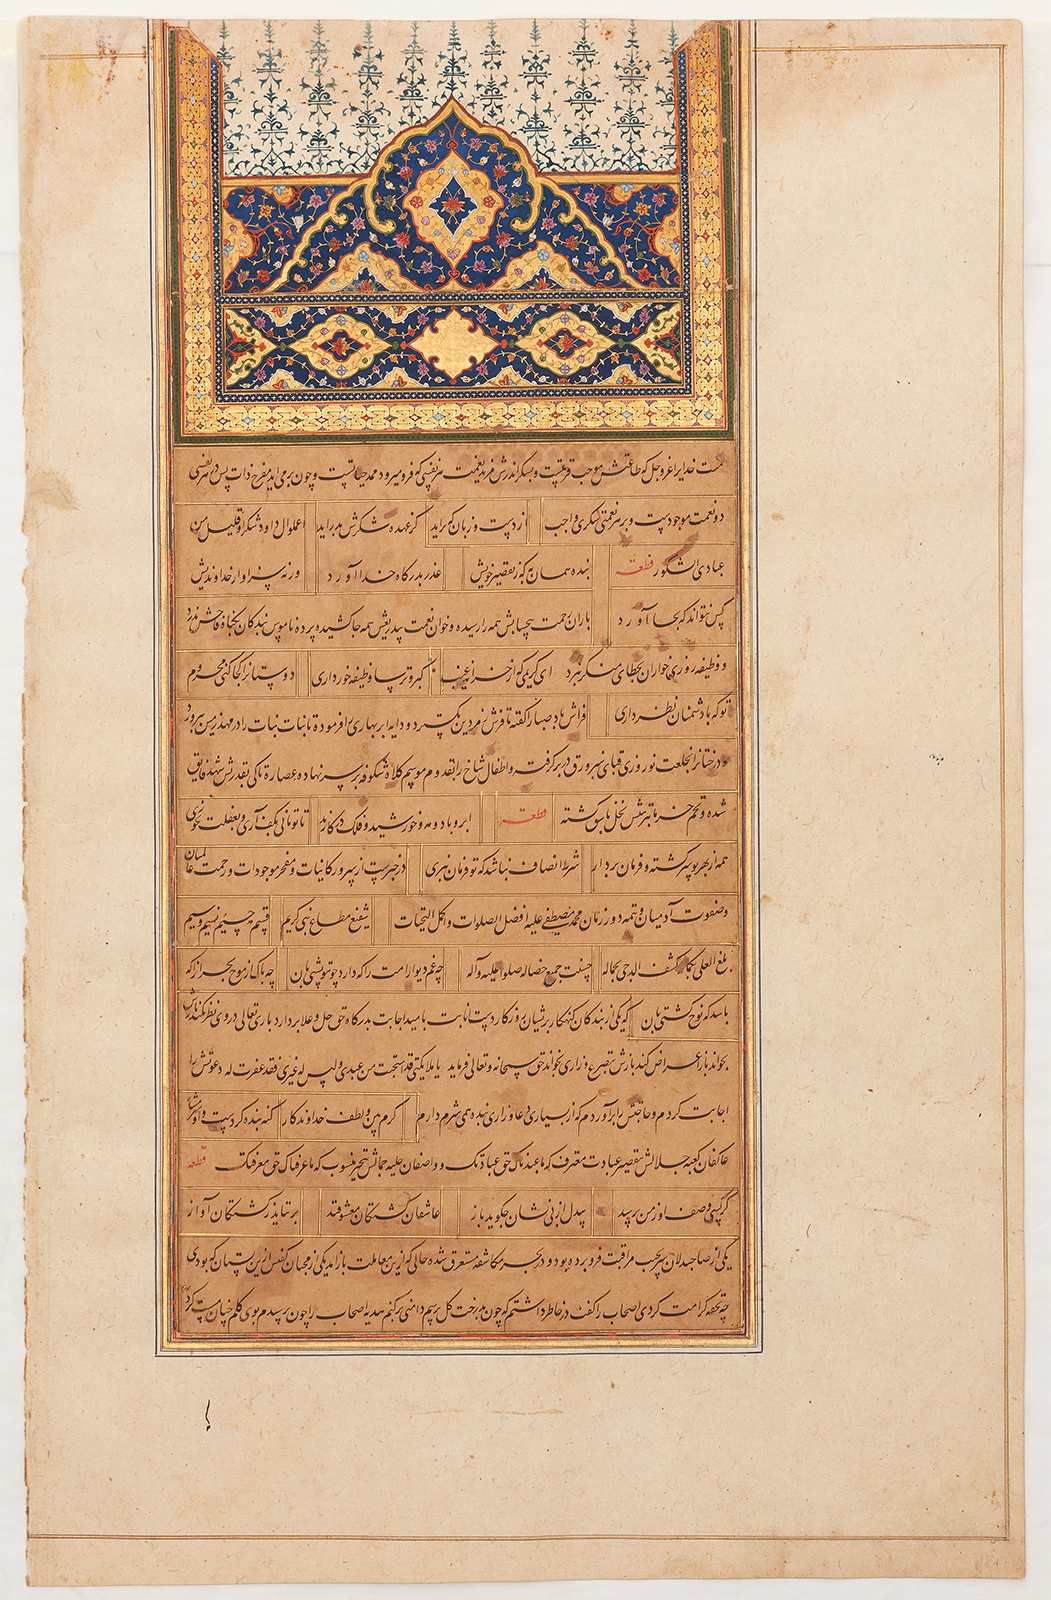 منت خدایرا عزوجل که طاعتش موجب قربتست و بشکر اندرش مزید نعمت هر نفسی که فرو میرود ممد حیاتست و چون برمی‌آید مفرح ذات پس در هر نفسی
دو نعمت موجودست و بر هر نعمتی شکری واجب از دست و زبان که برآید کز عهده شکرش بدر آید اعملوا آل داود شکرا و قلیل من
عبادی الشکور قطعه بنده همان به که ز تقصیر خویش عذر بدرگاه خدا آورد ورنه سزاوار خداوندیش
کس نتواند که بجا آورد باران رحمت بیحسابش همه را رسیده و خوان نعمت بیدریغش همه جا کشیده پرده ناموس بندگان بگناه فاحش ندرد
و وظیفه روزی خواران بخطای منکر نبرد ای کریمی که از خزانه غیب گبر و ترسا وظیفه خور داری دوستانرا کجا کنی محروم
تو که با دشمنان نظر داری فراش باد صبا را گفته تا فرش زمردین بگسترد و دایه ابر بهاری را فرموده تا بنات نبات را در مهد زمین بپرورد
و درختانرا بخلعت نوروزی قبای سبز ورق در بر گرفته و اطفال شاخ را بقدوم موسم کلاه شکوفه بر سر نهاده عصاره تاکی بقدرتش شهد فایق
شده و تخم خرما بتربیتش نخل باسق گشته قطعه ابر و باد و مه و خورشید و فلک در کارند تا تو نانی بکف آری و بغفلت نخوری
همه از بهر تو سرگشته و فرمان بردار شرط انصاف نباشد که تو فرمان نبری در خبرست از سرور کاینات و مفخر موجودات و رحمت عالمیان
و صفوت آدمیان و تتمه دور زمان محمد مصطفی علیه افضل الصلوات و اکمل التحیات شفیع مطاع نبی کریم قسیم جسیم نسیم وسیم
بلغ العلی بکماله کشف الدجی بجماله حسنت جمیع خصاله صلوا علیه و آله چه غم دیوار امت را که دارد چون تو پشتیبان چه باک از موج بحر آنرا که
باشد نوح کشتی‌بان که یکی از بندگان گنهکار پریشان روزگار دست انابت بامید اجابت بدرگاه حق جل و علا بردارد باری تعالی در وی نظر نکند بازش
بخواند باز اعراض کند بازش بتضرع و زاری بخواند حق سبحانه و تعالی فرماید یا ملائکتی قد استحییت من عبدی و لیس له غیری فقد غفرت له دعوتش را
اجابت کردم و حاجتش را برآوردم که از بسیاری دعا و زاری بنده همی شرم دارم کرم بین و لطف خداوندگار گنه بنده کردست و او شرمسار
عاکفان کعبه جلالش بتقصیر عبادت معترف که ما عبدناک حق عبادتک و واصفان حلیه جمالش بتحیر منسوب که ما عرفناک حق معرفتک قطعه
گر کسی وصف او ز من پرسد بیدل از بی نشان چگوید باز عاشقان کشتگان معشوقند بر نیاید ز کشتگان آواز
یکی از صاحبدلان سر بجیب مراقبت فرو برده بود و در بحر مکاشفه مستغرق شده حالی که ازین معاملت باز آمد یکی از محبان گفتش ازین بستان که بودی
چه تحفه کرامت کردی اصحاب را گفت در خاطر داشتم که چون بدرخت گل برسم دامنی پر کنم هدیه اصحاب را چون برسیدم بوی گلم چنان مست کرد که